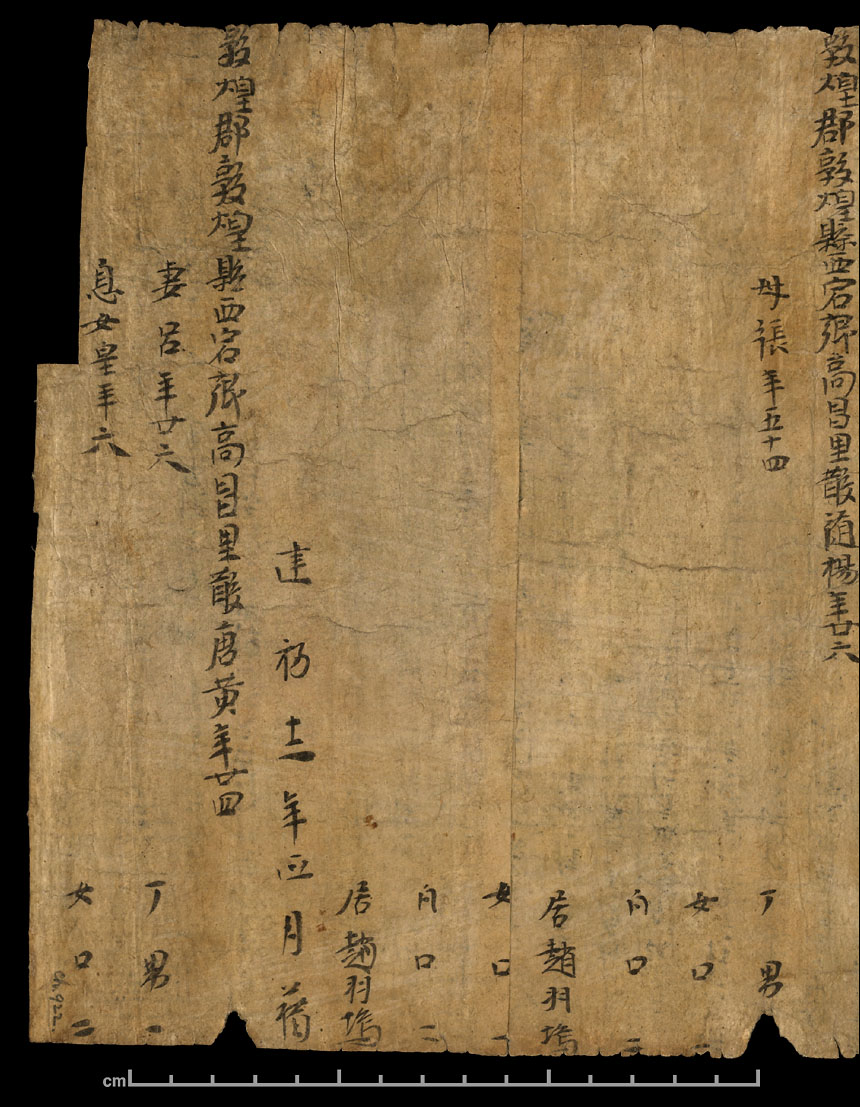 敦煌郡敦煌縣西宕鄉高昌里散隨楊年廿六
母張年五十四 丁男
女口一
凡口二
居趙羽塢
女口一
凡口二
居趙羽塢
建初十二年正月籍
敦煌郡敦煌縣西宕鄉高昌里散唐黃年廿四
妻呂年廿六 丁男一
息女皇年六 女口二
cm